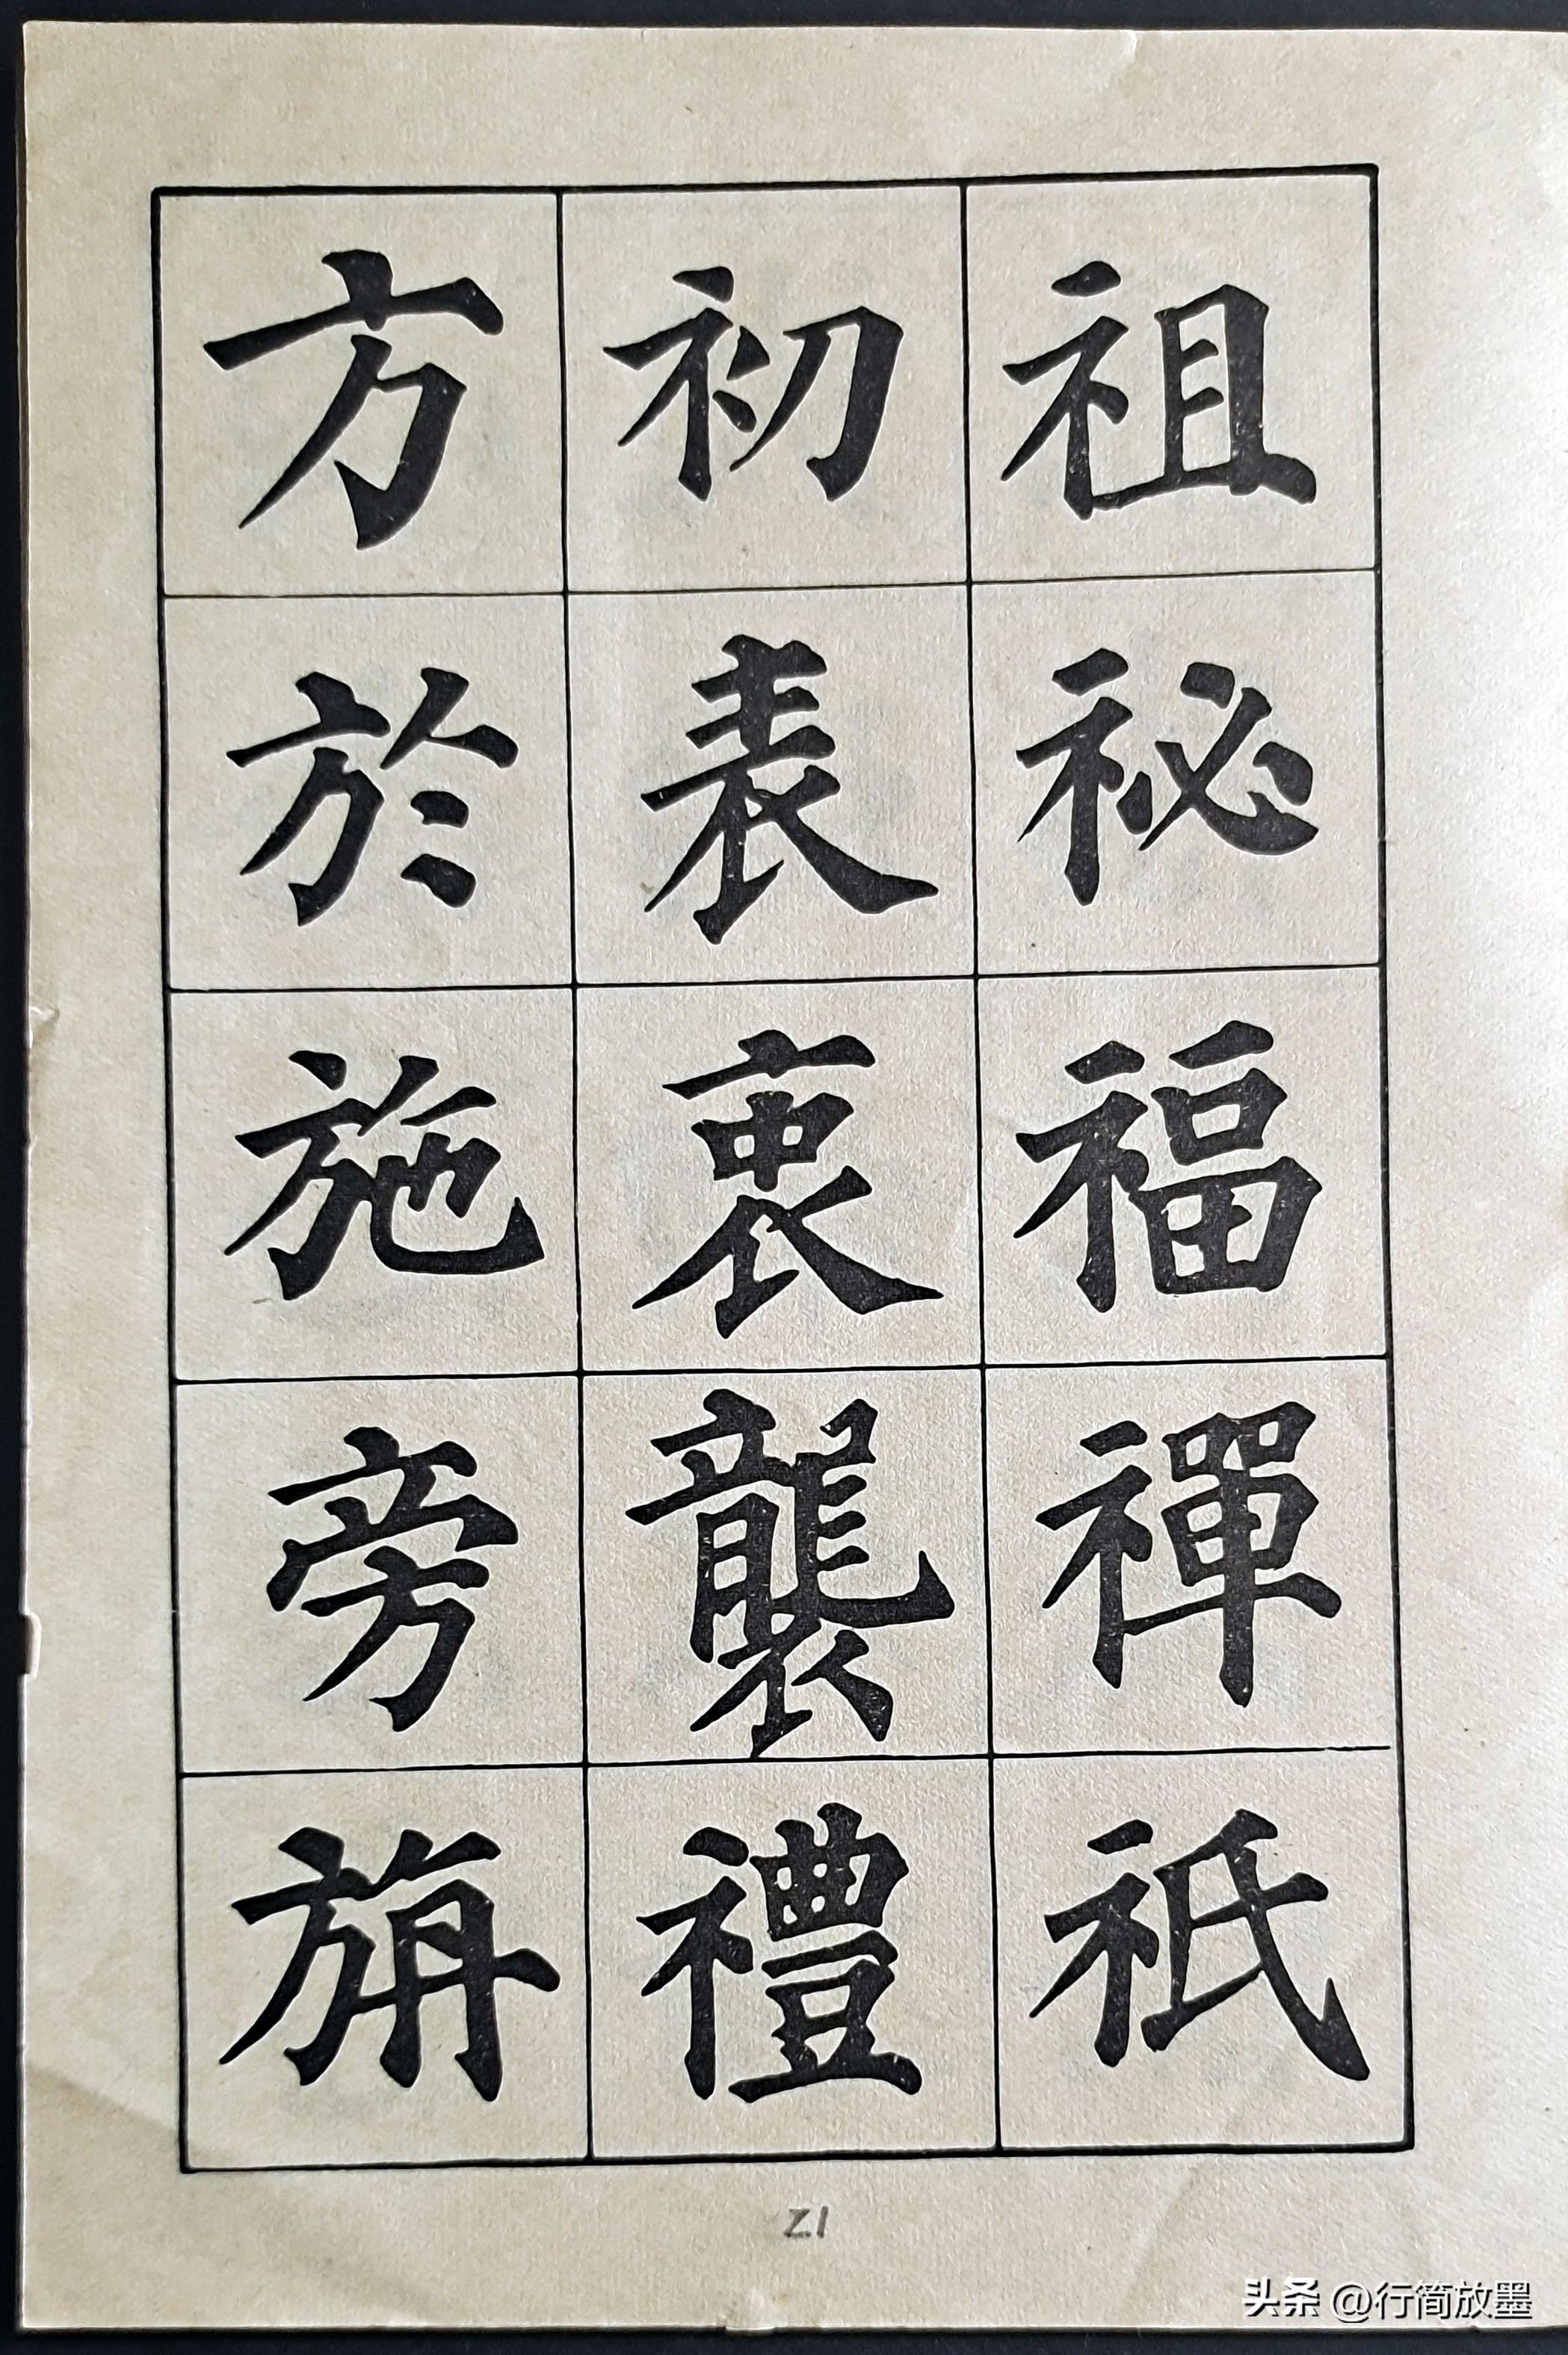 祖祕福禪祇
初表衷襲禮
方於施旁旃
21
头条 @行简放墨